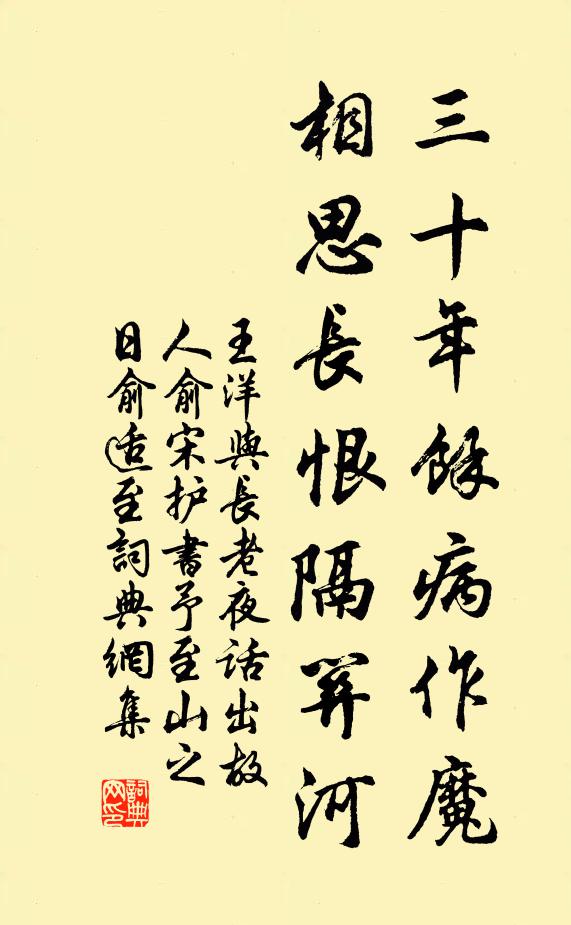 三十年餘病作魔
相思長恨隔關河
王洋與長老夜話出故
人俞宋护書予至山之
日俞适至詞典網集
詞典
网印